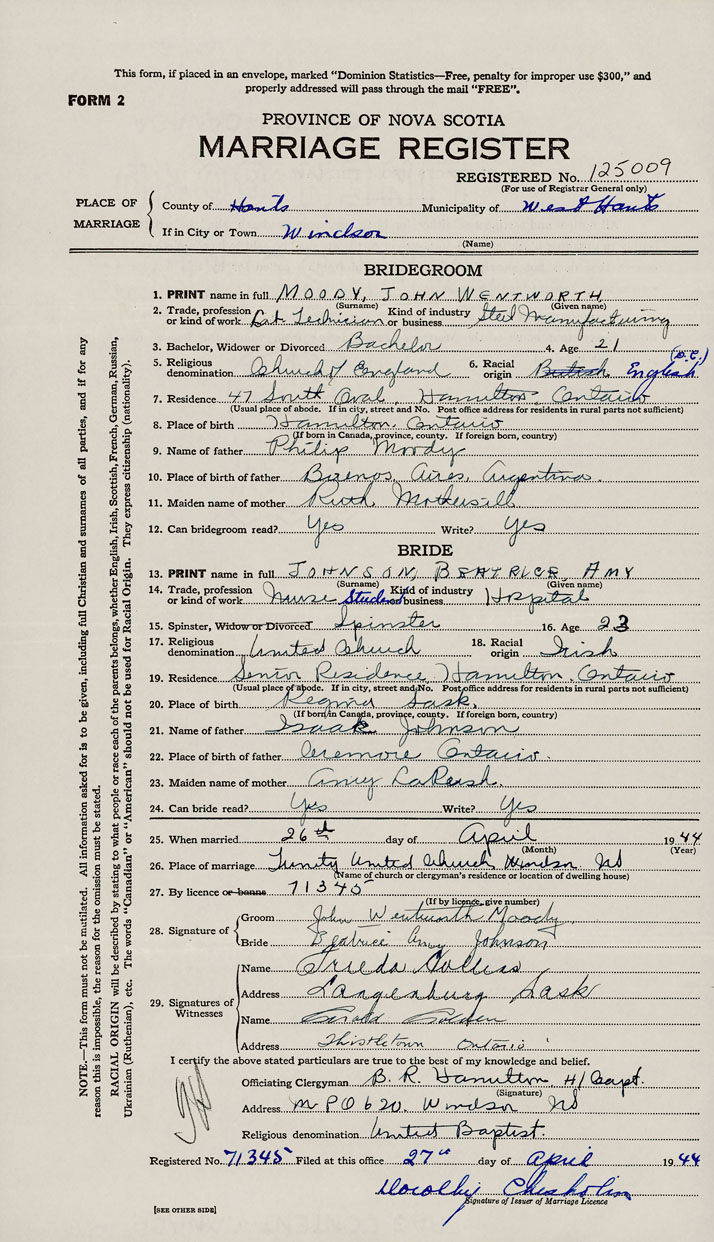 This form, if placed in an envelope, marked "Dominion Statistics—Free, penalty for improper use $300," and
properly addressed will pass through the mail "FREE".
FORM 2
PROVINCE OF NOVA SCOTIA
MARRIAGE REGISTER
REGISTERED No. 125009
(For use of Registrar General only)
PLACE OF MARRIAGE
County of Hants Municipality of West Hants
If in City or Town Windsor
(Name)
BRIDEGROOM
1. PRINT name in full MOODY, JOHN WENTWORTH
(Surname) (Given name)
2. Trade, profession or kind of work Lab Technician Kind of industry or business Steel Manufacturing
3. Bachelor, Widower or Divorced Bachelor 4. Age 21
(D.C.)
5. Religious denomination Church of England 6. Racial origin British English
7. Residence 47 South Oval, Hamilton Ontario
(Usual place of abode. If in city, street and No. Post office address for residents in rural parts not sufficient)
8. Place of birth Hamilton, Ontario
(If born in Canada, province, county. If foreign born, country)
9. Name of father Philip Moody
10. Place of birth of father Buenos Aires, Argentina.
11. Maiden name of mother Ruth Mothersill
12. Can bridegroom read? Yes Write? Yes
BRIDE
13. PRINT name in full JOHNSON, BEATRICE AMY
(Surname) (Given name)
14. Trade, profession or kind of work Nurse Student Kind of industry or business Hospital
15. Spinster, Widow or Divorced Spinster 16. Age 23
17. Religious denomination United Church 18. Racial origin Irish
19. Residence Senior Residence, Hamilton, Ontario
(Usual place of abode. If in city, street and No. Post office address for residents in rural parts not sufficient)
20. Place of birth Regina Sask.
(If born in Canada, province, county. If foreign born, country)
21. Name of father Isaak Johnson
22. Place of birth of father Ontario.
23. Maiden name of mother Amy
24. Can bride read? Yes Write? Yes
25. When married 26th day of April 1944
(Month) (Year)
26. Place of marriage Trinity United Church, Windsor NS
(Name of church or clergyman's residence or location of dwelling house)
27. By licence or banns 71345
(If by licence, give number)
28. Signature of
Groom John Wentworth Moody
Bride Beatrice Amy Johnson
29. Signatures of Witnesses
Name Frieda Collins
Address Langenburg Sask
Name Gerald
Address Thistletown Ontario
I certify the above stated particulars are true to the best of my knowledge and belief.
Officiating Clergyman B. R. Hamilton H/Capt.
(Signature)
Address M.P.O 620. Windsor NS
Religious denomination United Baptist.
Registered No. 71345 Filed at this office 27th day of April 1944
Dorothy Chisholm
Signature of Issuer of Marriage Licence
[SEE OTHER SIDE]
NOTE.—This form must not be mutilated. All information asked for is to be given, including full Christian and surnames of all parties, and if for any
reason this is impossible, the reason for the omission must be stated.
RACIAL ORIGIN will be described by stating to what people or race each of the parents belongs, whether English, Irish, Scottish, French, German, Russian,
Ukrainian (Ruthenian), etc. The words "Canadian" or "American" should not be used for Racial Origin. They express citizenship (nationality).